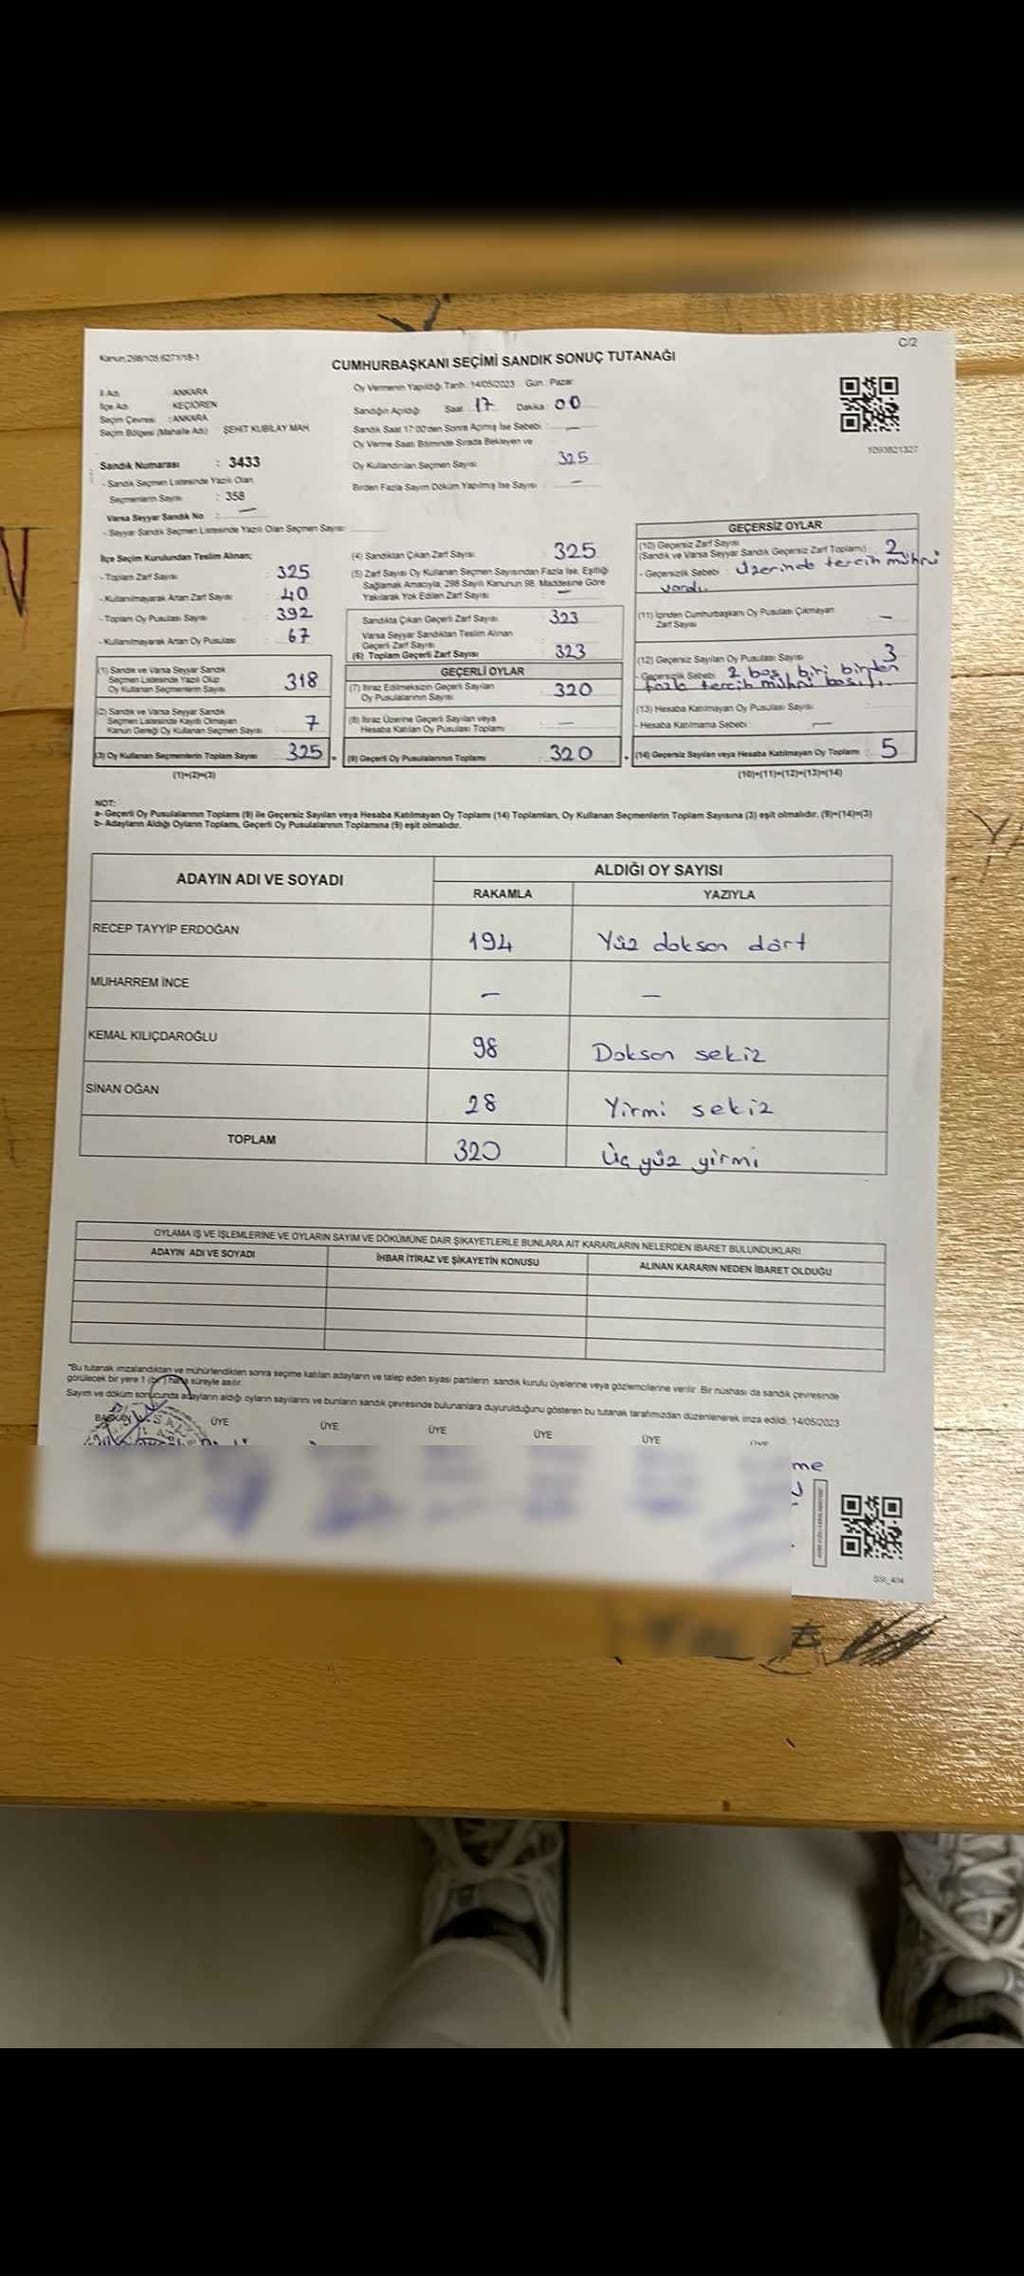 C/2
Kanun 298/105,6271/18-1
CUMHURBAŞKANI SEÇİMİ SANDIK SONUÇ TUTANAĞI
İl Adı : ANKARA
İlçe Adı : KEÇİÖREN
Seçim Çevresi : ANKARA
Seçim Bölgesi (Mahalle Adı) : ŞEHİT KUBİLAY MAH.
Oy Vermenin Yapıldığı Tarih : 14/05/2023 Gün : Pazar
Sandığın Açıldığı Saat 17 Dakika : 00
Sandık Saat 17:00'den Sonra Açılmış İse Sebebi : —
Oy Verme Saati Bitiminde Sırada Bekleyen ve
Oy Kullandırılan Seçmen Sayısı 325
Birden Fazla Sayım Döküm Yapılmış İse Sayısı : —
Sandık Numarası : 3433
- Sandık Seçmen Listesinde Yazılı Olan
Seçmenlerin Sayısı : 358
Varsa Seyyar Sandık No : —
- Seyyar Sandık Seçmen Listesinde Yazılı Olan Seçmen Sayısı:
İlçe Seçim Kurulundan Teslim Alınan;
- Toplam Zarf Sayısı : 325
- Kullanılmayarak Artan Zarf Sayısı : 40
- Toplam Oy Pusulası Sayısı : 392
- Kullanılmayarak Artan Oy Pusulası : 67
(1) Sandık ve Varsa Seyyar Sandık
Seçmen Listesinde Yazılı Olup
Oy Kullanan Seçmenlerin Sayısı 318
(2) Sandık ve Varsa Seyyar Sandık
Seçmen Listesinde Kaydı Olmayan
Kanun Gereği Oy Kullanan Seçmen Sayısı 7
(3) Oy Kullanan Seçmenlerin Toplam Sayısı 325 =
(1)+(2)=(3)
(4) Sandıktan Çıkan Zarf Sayısı 325
(5) Zarf Sayısı Oy Kullanan Seçmen Sayısından Fazla İse, Eşitliği
Sağlamak Amacıyla, 298 Sayılı Kanunun 98. Maddesine Göre
Yakılarak Yok Edilen Zarf Sayısı : —
Sandıkta Çıkan Geçerli Zarf Sayısı : 323
Varsa Seyyar Sandıktan Teslim Alınan
Geçerli Zarf Sayısı
(6) Toplam Geçerli Zarf Sayısı 323
GEÇERLİ OYLAR
(7) İtiraz Edilmeksizin Geçerli Sayılan
Oy Pusulalarının Sayısı 320
(8) İtiraz Üzerine Geçerli Sayılan veya
Hesaba Katılan Oy Pusulası Toplamı —
(9) Geçerli Oy Pusulalarının Toplamı 320 +
GEÇERSİZ OYLAR
(10) Geçersiz Zarf Sayısı
(Sandık ve Varsa Seyyar Sandık Geçersiz Zarf Toplamı) : 2
- Geçersizlik Sebebi : Üzerinde tercih mührü
vardı.
(11) İçinden Cumhurbaşkanı Oy Pusulası Çıkmayan
Zarf Sayısı —
(12) Geçersiz Sayılan Oy Pusulası Sayısı 3
- Geçersizlik Sebebi : 2 boş, biri birden
fazla tercih mührü
(13) Hesaba Katılmayan Oy Pusulası Sayısı :
- Hesaba Katılmama Sebebi : —
(14) Geçersiz Sayılan veya Hesaba Katılmayan Oy Toplamı : 5
(10)+(11)+(12)+(13)=(14)
NOT:
a- Geçerli Oy Pusulalarının Toplamı (9) ile Geçersiz Sayılan veya Hesaba Katılmayan Oy Toplamı (14) Toplamları, Oy Kullanan Seçmenlerin Toplam Sayısına (3) eşit olmalıdır. (9)+(14)=(3)
b- Adayların Aldığı Oyların Toplamı, Geçerli Oy Pusulalarının Toplamına (9) eşit olmalıdır.
ADAYIN ADI VE SOYADI ALDIĞI OY SAYISI
RAKAMLA YAZIYLA
RECEP TAYYİP ERDOĞAN 194 Yüz doksan dört
MUHARREM İNCE — —
KEMAL KILIÇDAROĞLU 98 Doksan sekiz
SİNAN OĞAN 28 Yirmi sekiz
TOPLAM 320 Üç yüz yirmi
OYLAMA İŞ VE İŞLEMLERİNE VE OYLARIN SAYIM VE DÖKÜMÜNE DAİR ŞİKAYETLERLE BUNLARA AİT KARARLARIN NELERDEN İBARET BULUNDUKLARI
ADAYIN ADI VE SOYADI İHBAR İTİRAZ VE ŞİKAYETİN KONUSU ALINAN KARARIN NEDEN İBARET OLDUĞU
"Bu tutanak imzalandıktan ve mühürlendikten sonra seçime katılan adayların ve talep eden siyasi partilerin sandık kurulu üyelerine veya gözlemcilerine verilir. Bir nüshası da sandık çevresinde
görülecek bir yere 1 (bir) hafta süreyle asılır.
Sayım ve döküm sonucunda adayların aldığı oyların sayılarını ve bunların sandık çevresinde bulunanlara duyurulduğunu gösteren bu tutanak tarafımızdan düzenlenerek imza edildi. 14/05/2023
BAŞKAN ÜYE ÜYE ÜYE ÜYE ÜYE
me